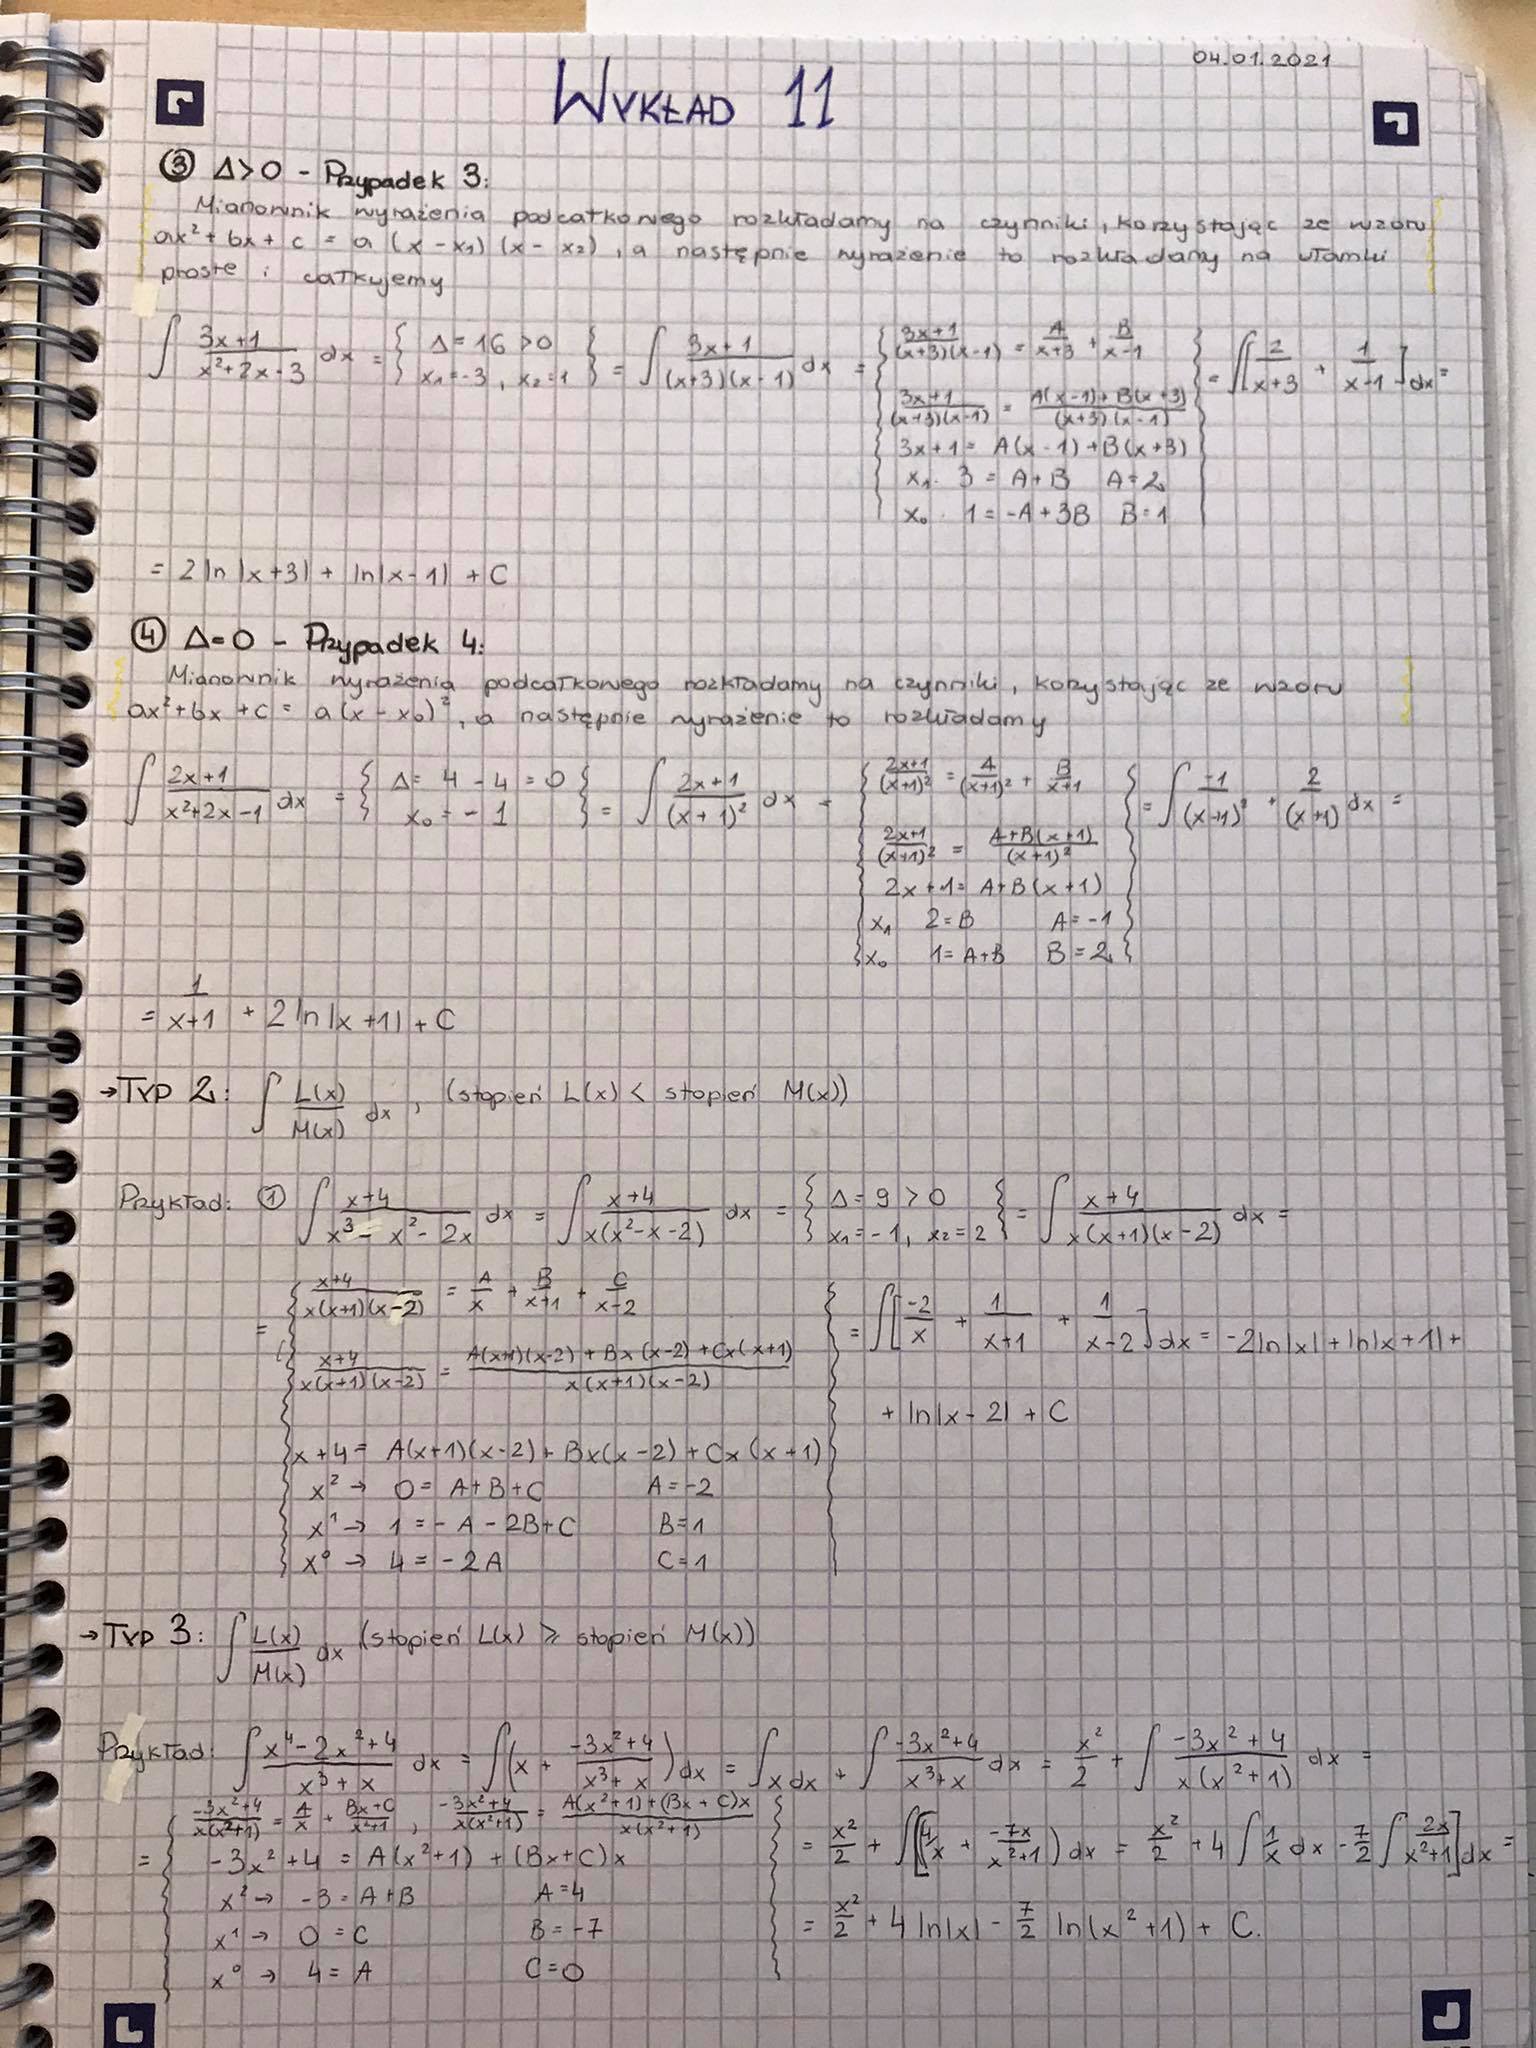 04.01.2021
WYKŁAD 11
③ Δ>0 - Przypadek 3:
Mianownik wyrażenia podcałkowego rozkładamy na czynniki, korzystając ze wzoru
ax²+bx+c = a (x-x₁) (x-x₂), a następnie wyrażenie to rozkładamy na ułamki
proste i całkujemy
∫ (3x+1)/(x²+2x-3) dx = { Δ=16>0 x₁=-3, x₂=1 } = ∫ (3x+1)/((x+3)(x-1)) dx = { (3x+1)/((x+3)(x-1)) = A/(x+3) + B/(x-1) } = ∫[2/(x+3) + 1/(x-1)]dx =
(3x+1)/((x+3)(x-1)) = (A(x-1)+B(x+3))/((x+3)(x-1))
3x+1 = A(x-1)+B(x+3)
x₁. 3 = A+B A=2
x₀. 1=-A+3B B=1
= 2ln|x+3| + ln|x-1| + C
④ Δ=0 - Przypadek 4:
Mianownik wyrażenia podcałkowego rozkładamy na czynniki, korzystając ze wzoru
ax²+bx+c = a(x-x₀)², a następnie wyrażenie to rozkładamy
∫ (2x+1)/(x²+2x-1) dx = { Δ= 4-4=0 x₀=-1 } = ∫ (2x+1)/(x+1)² dx = { (2x+1)/(x+1)² = A/(x+1)² + B/(x+1) } = ∫ -1/(x+1)² + 2/(x+1) dx =
(2x+1)/(x+1)² = (A+B(x+1))/(x+1)²
2x+1 = A+B(x+1)
x₁ 2=B A=-1
x₀ 1=A+B B=2
= 1/(x+1) + 2ln|x+1| + C
→ Typ 2: ∫ L(x)/M(x) dx, (stopień L(x) < stopień M(x))
Przykład: ① ∫ (x+4)/(x³-x²-2x) dx = ∫ (x+4)/(x(x²-x-2)) dx = { Δ=9>0 x₁=-1, x₂=2 } = ∫ (x+4)/(x(x+1)(x-2)) dx =
= { (x+4)/(x(x+1)(x-2)) = A/x + B/(x+1) + C/(x-2) } = ∫[-2/x + 1/(x+1) + 1/(x-2)]dx = -2ln|x| + ln|x+1| +
(x+4)/(x(x+1)(x-2)) = (A(x+1)(x-2) + Bx(x-2) + Cx(x+1))/(x(x+1)(x-2))
+ ln|x-2| + C
x+4 = A(x+1)(x-2) + Bx(x-2) + Cx(x+1)
x² → 0=A+B+C A=-2
x¹ → 1=-A-2B+C B=1
x⁰ → 4=-2A C=1
→ Typ 3: ∫ L(x)/M(x) dx (stopień L(x) ⩾ stopień M(x))
Przykład: ∫ (x⁴-2x²+4)/(x³+x) dx = ∫(x + (-3x²+4)/(x³+x))dx = ∫xdx + ∫ (-3x²+4)/(x³+x) dx = x²/2 + ∫ (-3x²+4)/(x(x²+1)) dx =
= { (-3x²+4)/(x(x²+1)) = A/x + (Bx+C)/(x²+1), (-3x²+4)/(x(x²+1)) = (A(x²+1)+(Bx+C)x)/(x(x²+1)) } = x²/2 + ∫[(4/x + -7x/(x²+1)) dx = x²/2 + 4∫ 1/x dx - 7/2 ∫ 2x/(x²+1)]dx =
-3x²+4 = A(x²+1) + (Bx+C)x
x² → -3=A+B A=4
x¹ → 0=C B=-7
x⁰ → 4=A C=0
= x²/2 + 4ln|x| - 7/2 ln(x²+1) + C.